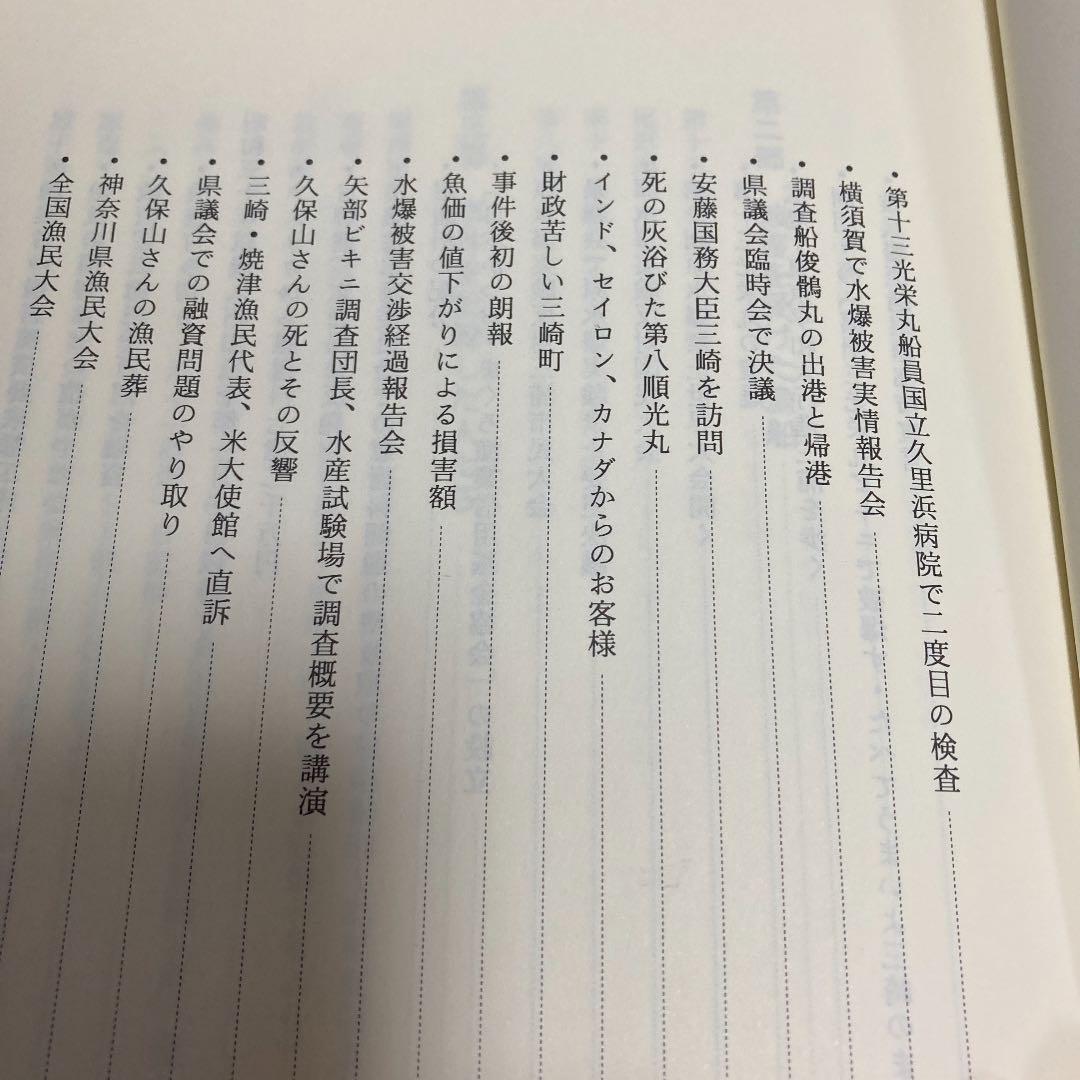 ・第十三光栄丸船員国立久里浜病院で二度目の検査
・横須賀で水爆被害実情報告会
・調査船俊鶻丸の出港と帰港
・県議会臨時会で決議
・安藤国務大臣三崎を訪問
・死の灰浴びた第八順光丸
・インド、セイロン、カナダからのお客様
・財政苦しい三崎町
・事件後初の朗報
・魚価の値下がりによる損害額
・水爆被害交渉経過報告会
・矢部ビキニ調査団長、水産試験場で調査概要を講演
・久保山さんの死とその反響
・三崎・焼津漁民代表、米大使館へ直訴
・県議会での融資問題のやり取り
・久保山さんの漁民葬
・神奈川県漁民大会
・全国漁民大会